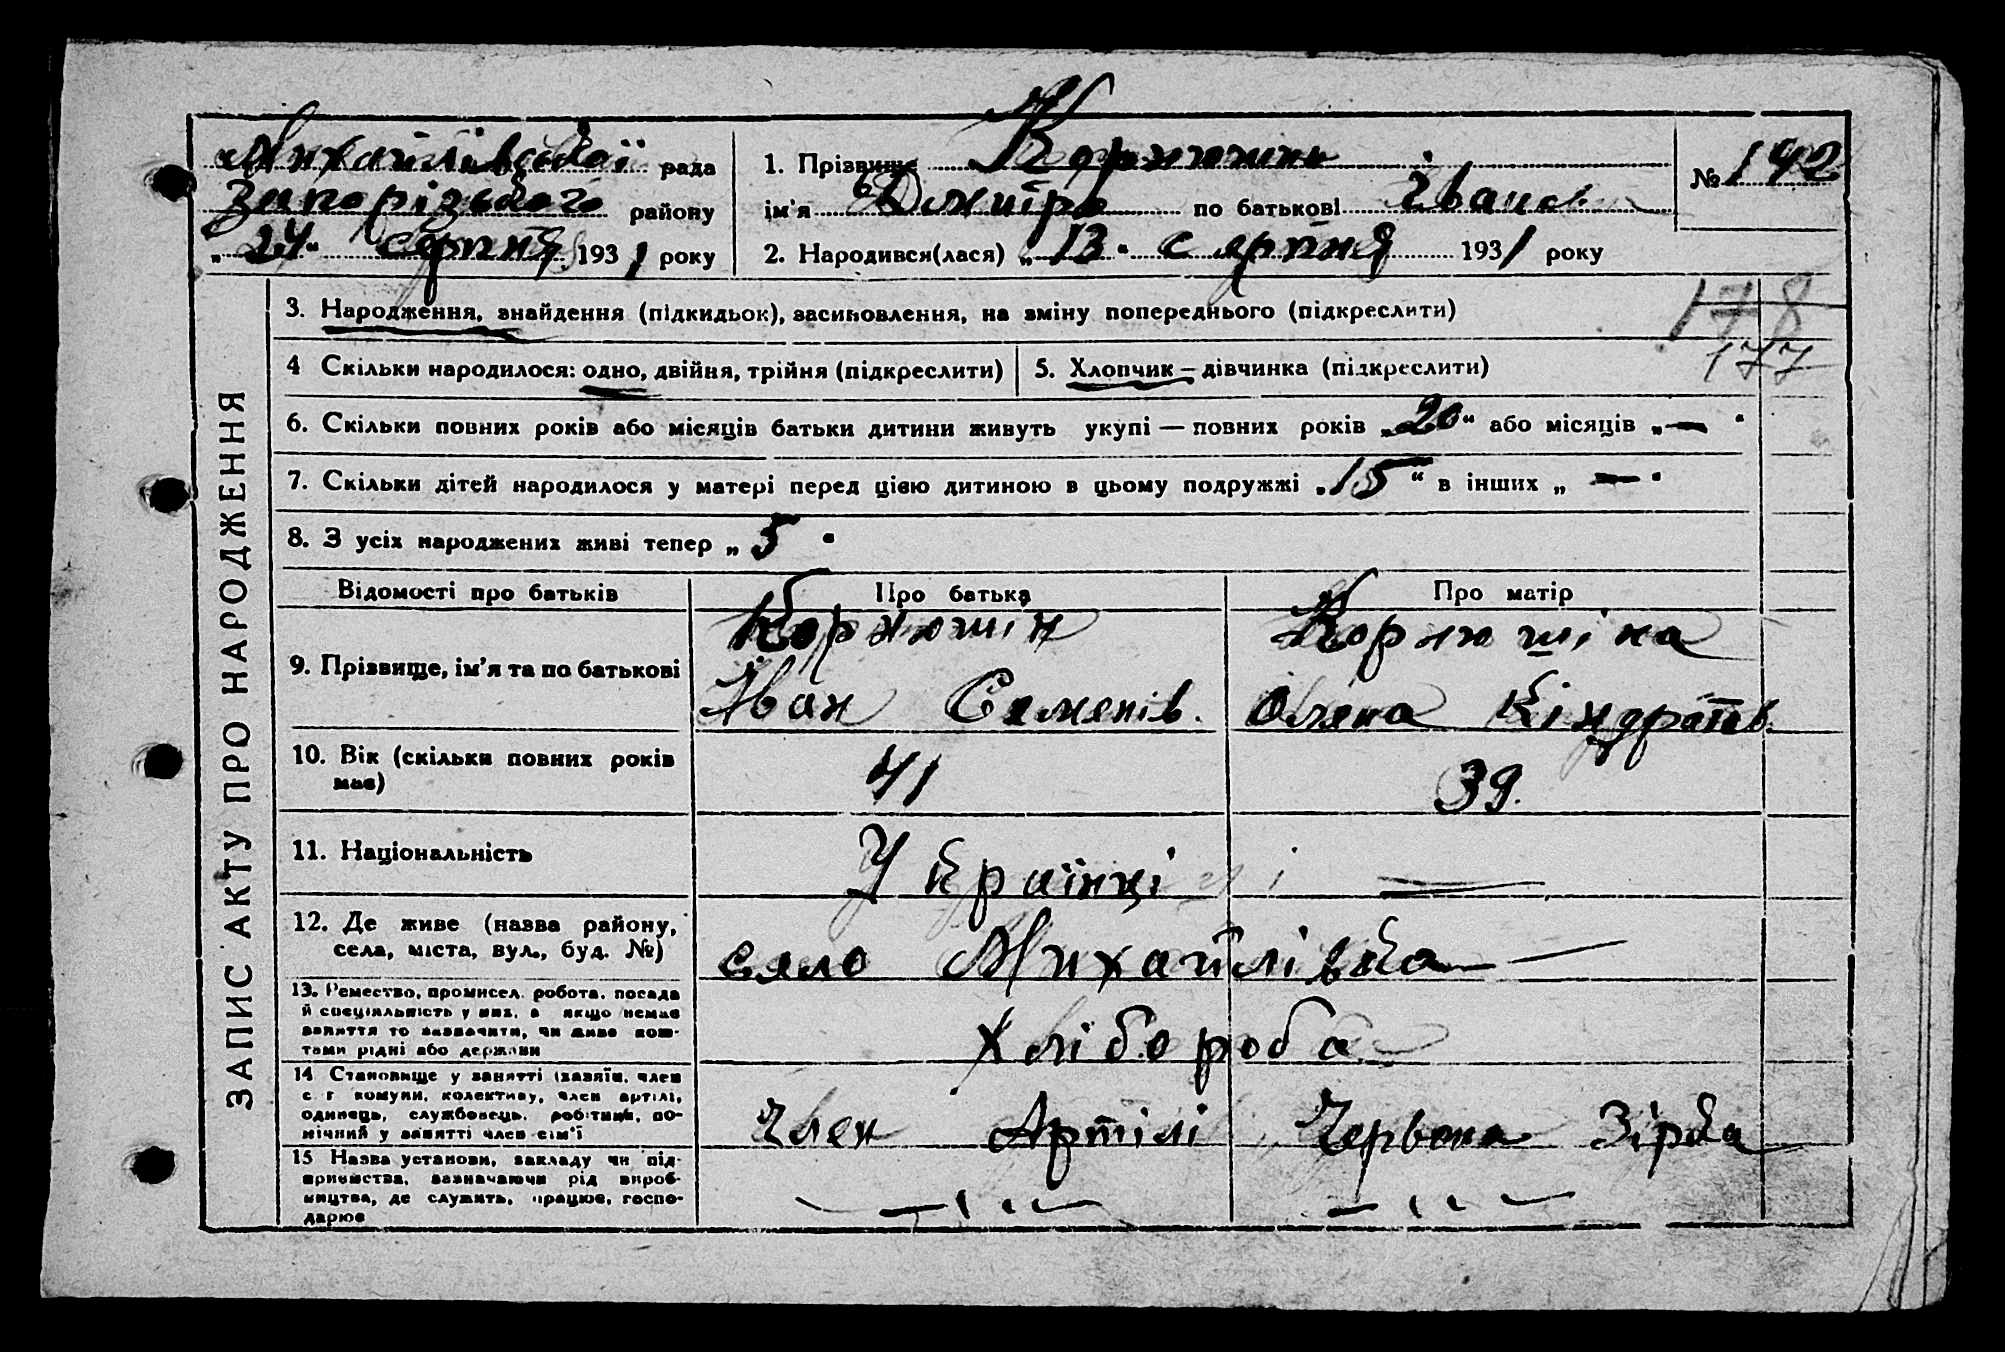 ЗАПИС АКТУ ПРО НАРОДЖЕННЯ
Михайлівської рада
Запорізького району
„24“ серпня 1931 року
1. Прізвище Корнюшин
ім'я Дмитро по батькові Іванов
2. Народився(лася) „13“ серпня 1931 року
№ 142
178
177
3. Народження, знайдення (підкидьок), засиновлення, на зміну попереднього (підкреслити)
4 Скільки народилося: одно, двійня, трійня (підкреслити)
5. Хлопчик – дівчинка (підкреслити)
6. Скільки повних років або місяців батьки дитини живуть укупі — повних років „20“ або місяців „—“
7. Скільки дітей народилося у матері перед цією дитиною в цьому подружжі „15“ в інших „—“
8. З усіх народжених живі тепер „5“
Відомості про батьків Про батька Про матір
9. Прізвище, ім'я та по батькові
Корнюшін
Іван Семенів.
Корнюшіна
Олена Кіндратів.
10. Вік (скільки повних років
має)
41 39.
11. Національність
Українці —
12. Де живе (назва району,
села, міста, вул., буд. №)
село Михайлівка —
13. Ремество, промисел, робота, посада
й спеціяльність у них, а якщо немає
заняття то зазначити, чи живе кош-
тами рідні або держави
Хлібороба
14 Становище у занятті (хазяїн, член
с г комуни, колективу, член артілі,
одинець, службовець, робітник, по-
мічний у занятті член сім'ї
Член Артілі Червона Зірка
15 Назва установи, закладу чи під-
приємства, зазначаючи рід вироб-
ництва, де служить, працює, госпо-
дарює
— „ — — „ —